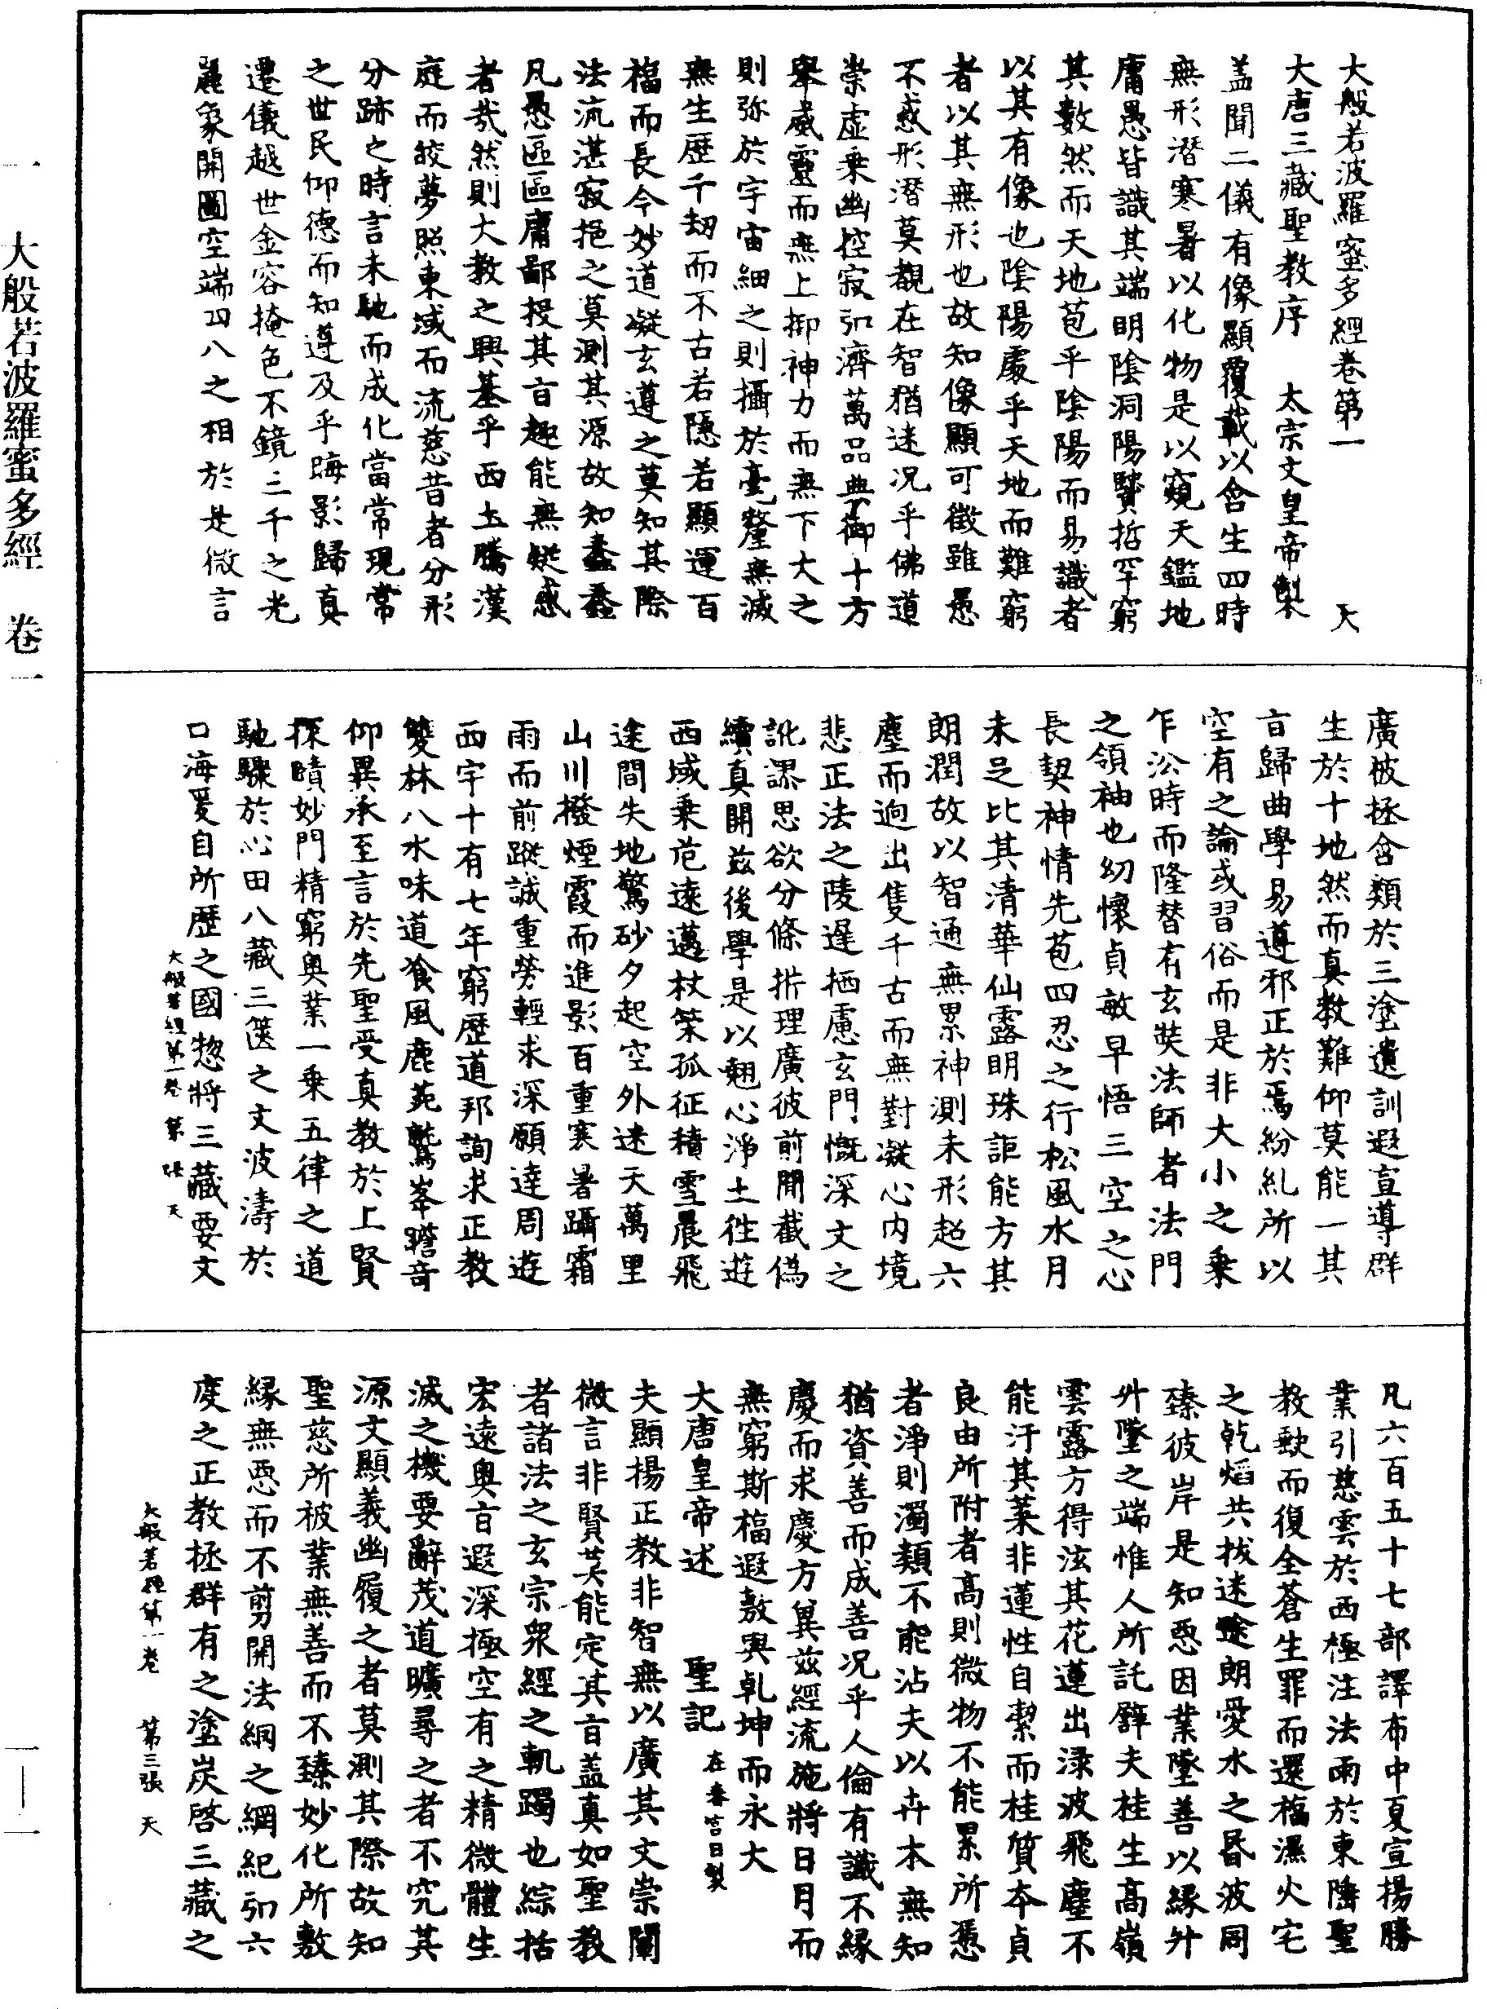 大般若波羅蜜多經卷第一 天
大唐三藏聖教序 太宗文皇帝製
盖聞二儀有像顯覆載以含生四時
無形潛寒暑以化物是以窺天鑑地
庸愚皆識其端明陰洞陽賢哲罕窮
其數然而天地苞乎陰陽而易識者
以其有像也陰陽處乎天地而難窮
者以其無形也故知像顯可徵雖愚
不惑形潛莫覩在智猶迷況乎佛道
崇虛乗幽控寂弘濟萬品典御十方
舉威靈而無上抑神力而無下大之
則弥於宇宙細之則攝於毫釐無滅
無生歷千劫而不古若隱若顯運百
福而長今妙道凝玄遵之莫知其際
法流湛寂挹之莫測其源故知蠢蠢
凡愚區區庸鄙投其旨趣能無疑惑
者哉然則大教之興基乎西土騰漢
庭而皎夢照東域而流慈昔者分形
分跡之時言未馳而成化當常現常
之世民仰德而知遵及乎晦影歸真
遷儀越世金容掩色不鏡三千之光
麗象開圖空端四八之相於是微言
廣被拯含類於三塗遺訓遐宣導群
生於十地然而真教難仰莫能一其
旨歸曲學易遵邪正於焉紛糺所以
空有之論或習俗而是非大小之乗
乍㳂時而隆替有玄奘法師者法門
之領袖也幼懷貞敏早悟三空之心
長契神情先苞四忍之行松風水月
未足比其清華仙露明珠詎能方其
朗潤故以智通無累神測未形超六
塵而逈出隻千古而無對凝心内境
悲正法之陵遲栖慮玄門慨深文之
訛謬思欲分條析理廣彼前聞截偽
續真開兹後學是以翹心淨土往遊
西域乗危遠邁杖策孤征積雪晨飛
途間失地驚砂夕起空外迷天萬里
山川撥煙霞而進影百重寒暑躡霜
雨而前蹤誠重勞輕求深願達周遊
西宇十有七年窮歷道邦詢求正教
雙林八水味道飡風鹿菀鷲峯瞻奇
仰異承至言於先聖受真教於上賢
探賾妙門精窮奥業一乗五律之道
馳驟於心田八藏三篋之文波濤於
口海爰自所歷之國惣將三藏要文
大般若經第一卷 第 張 天
凡六百五十七部譯布中夏宣揚勝
業引慈雲於西極注法雨於東陲聖
教缺而復全蒼生罪而還福濕火宅
之乾焰共拔迷途朗愛水之昏波同
臻彼岸是知惡因業墜善以緣升
升墜之端惟人所託譬夫桂生高嶺
雲露方得泫其花蓮出淥波飛塵不
能汙其葉非蓮性自潔而桂質本貞
良由所附者高則微物不能累所憑
者淨則濁類不能沾夫以卉木無知
猶資善而成善況乎人倫有識不緣
慶而求慶方兾兹經流施將日月而
無窮斯福遐敷與乹坤而永大
大唐皇帝述 聖記 在春宮日製
夫顯揚正教非智無以廣其文崇闡
微言非賢莫能定其旨盖真如聖教
者諸法之玄宗衆經之軌躅也綜括
宏遠奥旨遐深極空有之精微體生
滅之機要辭茂道曠尋之者不究其
源文顯義幽履之者莫測其際故知
聖慈所被業無善而不臻妙化所敷
緣無惡而不剪開法網之綱紀弘六
度之正教拯群有之塗炭啓三藏之
大般若經第一卷 第三張 天
大般若波羅蜜多經 卷一
一—一